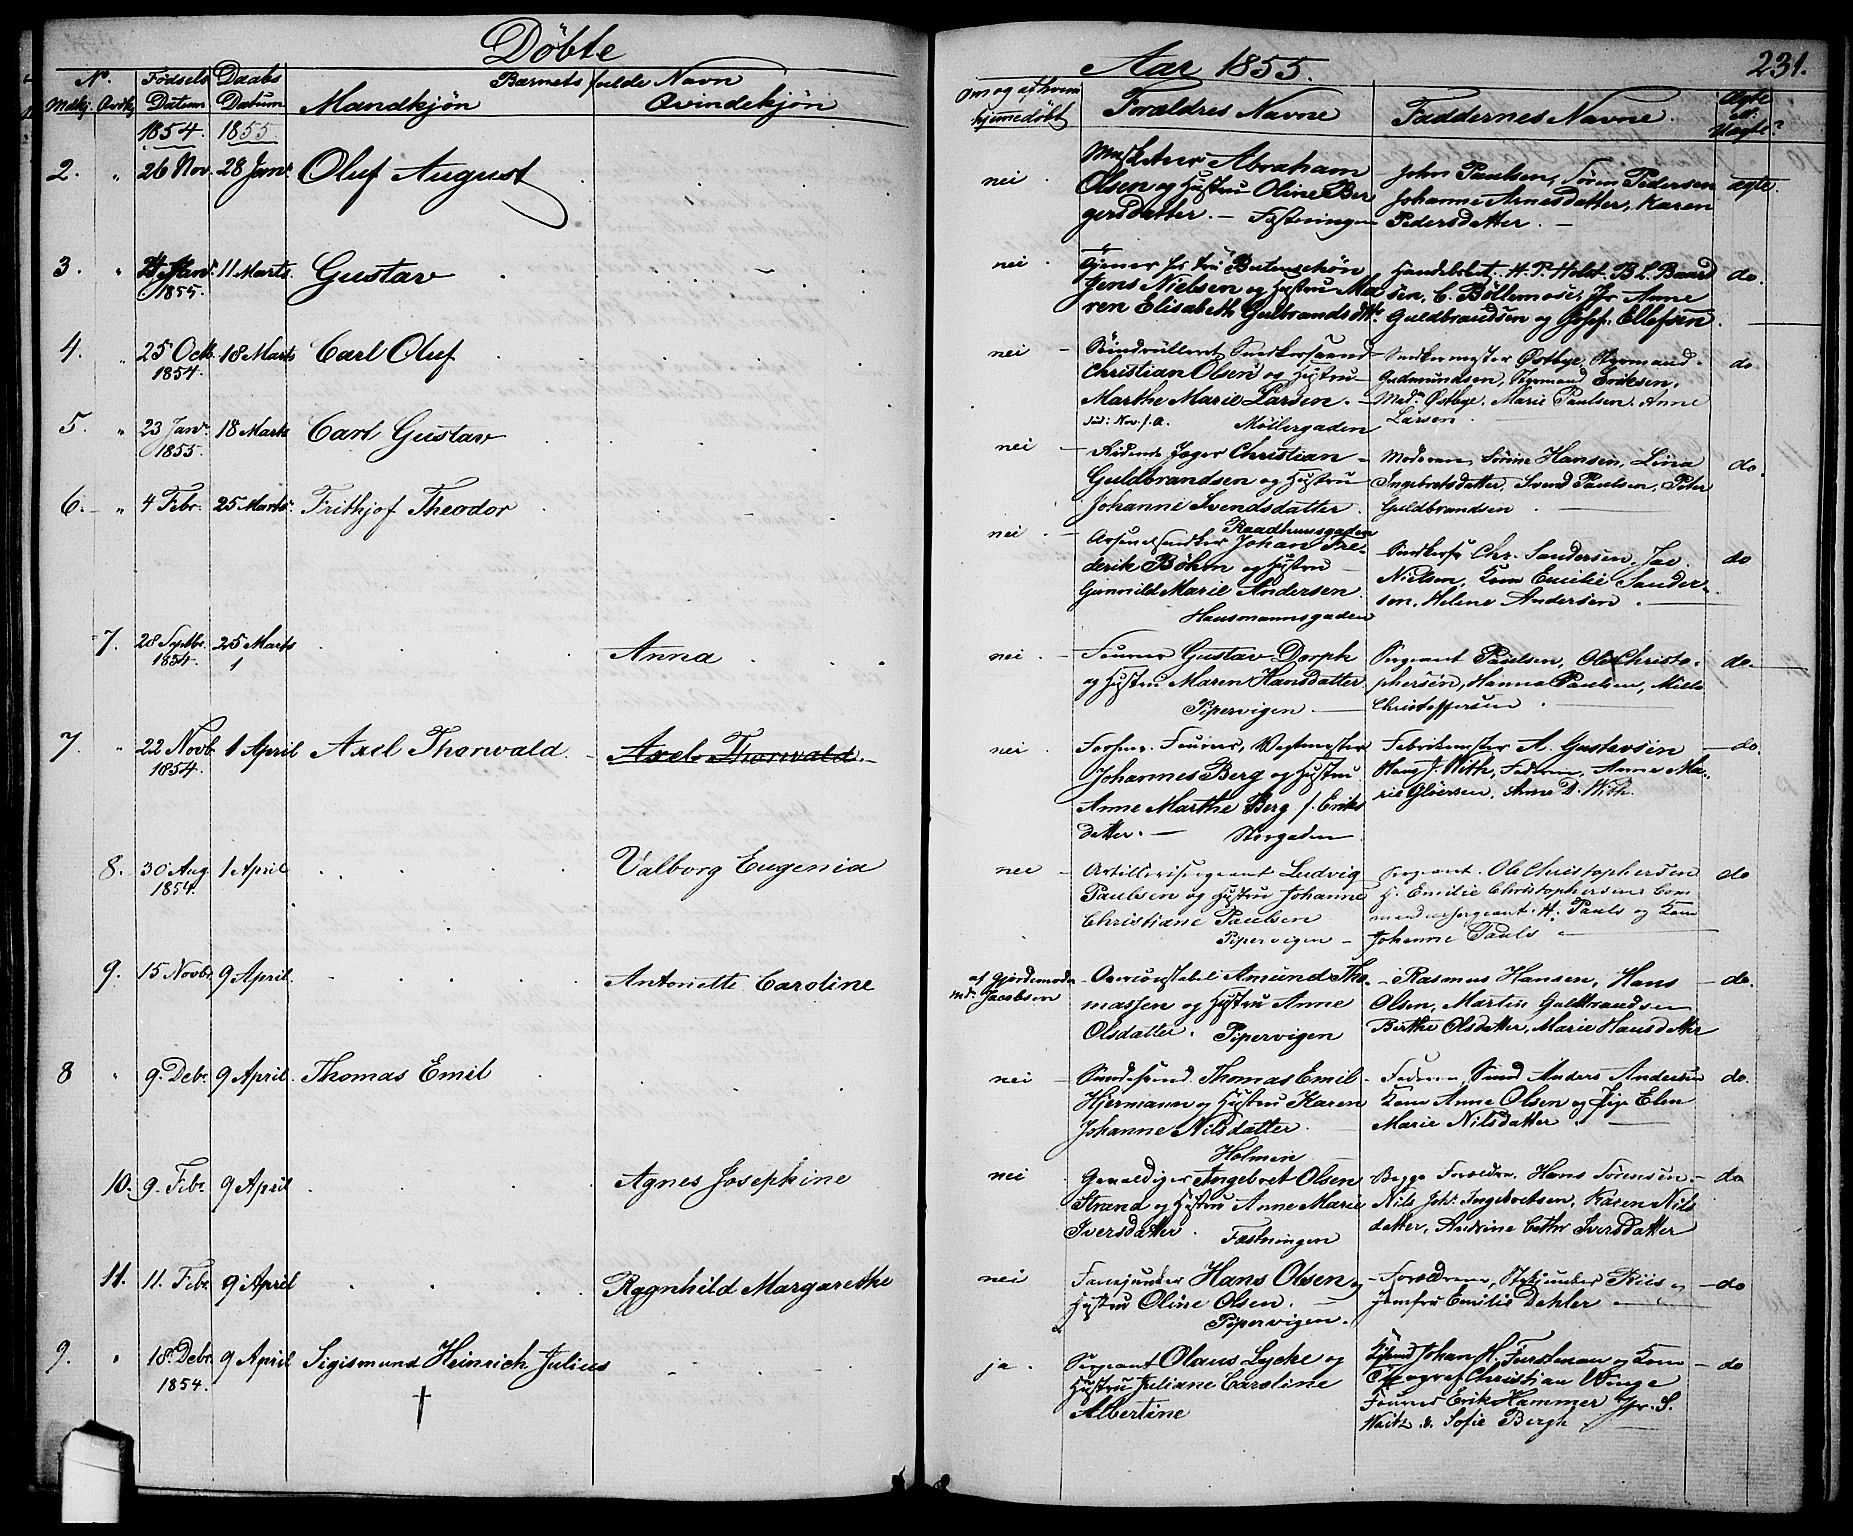 Döbte
Aar 1855.
231.
No.
Mdkj. Qvdkj
Fødsels Datum
Daabs Datum
Barnets fulde Navn
Mandkjön
Qvindekjön
Om og af hvem hjemmedöbt
Forældres Navne
Faddernes Navne.
Ægte el. Uægte?
1854. 1855.
2. " 26 Nov. 28 Janr. Oluf August
nei
Abraham
Olsen og Hustru Oline Ber
gersdatter. - Fæstningen
John Paulsen, Sören Pedersen
Johanne Arnesdatter, Karen
Pedersdatter. -
ægte.
3. " 1855. 11 Marts. Gustav
nei
Jens Nielsen og Hustru Ma
ren Elisabeth Gulbrandsdtr.
H. P. Holst. B. L. Baard
sen, C. Böllemose, Jfr Anne
Guldbrandsen og Josef. Ellefsen.
do.
4. " 25 Octb. 1854. 18 Marts Carl Oluf
nei
Christian Olsen og Hustru
Marthe Marie Larsen. -
Möllergaden
Snedkermester Østbye,
Gudmundsen, Eriksen,
Madm. Østbye. Marie Paulsen. Anne
Larsen
do
5. " 23 Janr. 1855. 18 Marts Carl Gustav
nei
Ridende Jæger Christian
Guldbrandsen og Hustru
Johanne Svendsdatter.
Raadhuusgaden
Moderen, Sörine Hansen, Lina
Ingebretsdatter, Svend Paulsen, Peter
Guldbrandsen
do.
6. - " 4 Febr. 25 Marts. Frithjof Theodor
nei
Johan Fre-
derik Böhm og Hustru -
Gunnild Marie Andersen
Hausmannsgaden
Chr. Sandersen. Jac.
Nielsen, Kone Emilie Sander-
sen, Helene Andersen.
do
7. 28 Septbr. 1854. 25 Marts Anna
nei
Gustav Dorph
og Hustru Maren Hansdatter
Pipervigen. -
Sergeant Paulsen, Ole Christo-
phersen, Hanna Paulsen,
Christoffersen
do.
7 " 22 Novb. 1854. 1 April Axel Thorwald. - Axel Thorwald. -
nei
Johannes Berg og Hustru
Anne Marthe Berg f. Eriks
datter. - Storgaden
A. Gustavsen
Hans J. With, Faderen, Anne Ma-
rie Glöersen, Anne D. With
do.
8. 30 Aug 1854. 1 April Valborg Eugenia
nei
Artillerisergeant Ludvig
Paulsen og Hustru Johanne
Christiane Paulsen
Pipervigen -
Sergeant. Ole Christophersen
H. Emilie Christophersen Com
mandeersergeant. H. Pauls og Kone
Johanne Pauls
do
9. 15 Novbr 9 April. Antonette Caroline
af Gjordemoder
Md. Jacobsen
Overconstabel Amund Tho-
massen og Hustru Anne
Olsdatter. Pipervigen
Rasmus Hansen, Hans
Olsen, Martin Guldbrandsen
Berthe Olsdatter, Marie Hansdatter
do.
8 " 9. Debr 9 April. Thomas Emil
nei
Thomas Emil
Hjermann og Hustru Karen
Johanne Nilsdatter.
Holmen
Faderen, Anders Andersen
Kone Anne Olsen og Pige Elen
Marie Nilsdatter.
do.
10. 9. Febr 9 April Agnes Josephine
nei
Gevaldiger Ingebret Olsen
Strand og Hustru Anne Marie
Iversdatter. Fæstningen
Begge Forældre. Hans Sörensen. -
Nils Johs. Ingebretsen, Karen Nils
datter, Andrine Cathr Iversdatter
do
11. 11. Febr 9 April Ragnhild Margarethe
nei
Fanejunker Hans Olsen og
Hustru Oline Olsen. -
Pipervigen.
Forældrene, Stykjunker Riis og
Jomfru Emilie Dahler
do
9. " 18. Debr 1854. 9 April Sigismund Heinrich Julius
†
ja.
Sergeant Olaus Lycke og
Hustru Juliane Caroline
Albertine
Johan H. Furstman og Kone
Christian Winge
Erik Hammer Jfr. S.
Waitz & Sofie Bergh
do